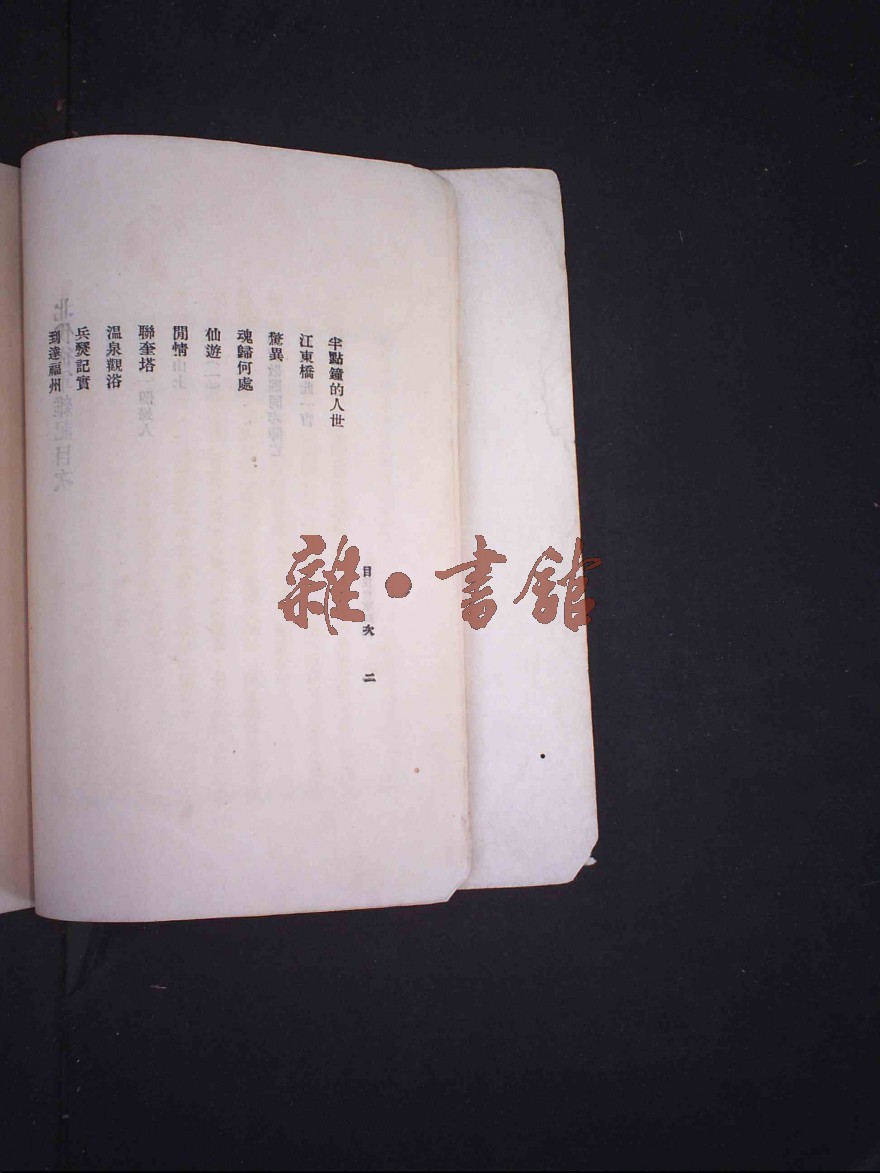 半點鐘的人世
江東橋
驚異
魂歸何處
仙遊
閒情
聯奎塔
溫泉觀浴
兵燹記實
到達福州
目次 二
雜·書館